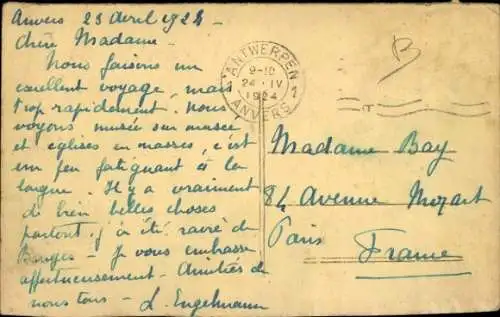 Anvers 23 Avril 1924
Chère Madame -
Nous faisons un
excellent voyage, mais
trop rapidement. Nous
voyons musée sur musée
et églises en masses, c'est
un peu fatiguant à la
longue. Il y a vraiment
de bien belles choses
partout. j'ai été ravie de
Bruges - Je vous embrasse
affectueusement - Amitiés de
nous tous - L. Engelmann
ANTWERPEN 1
9-10
24 IV
1924
ANVERS
B
Madame Bay
84 Avenue Mozart
Paris
France